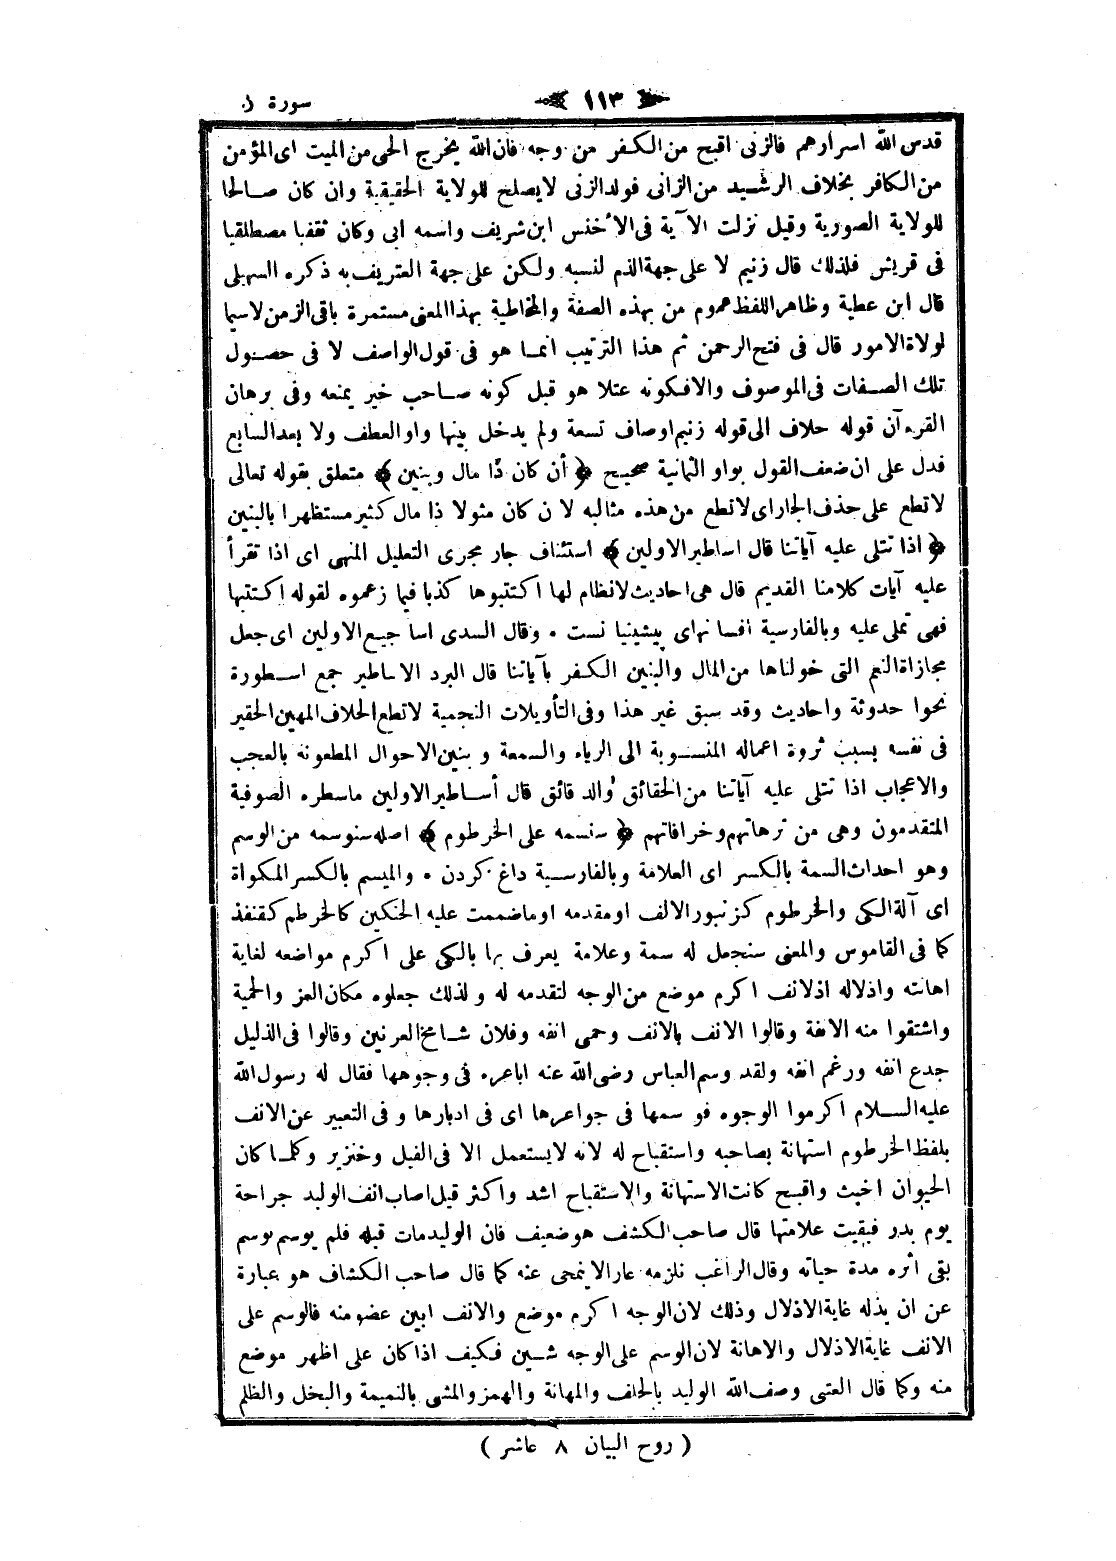 سورة ن
﴿ ١١٣ ﴾
قدس الله اسرارهم فالزنى اقبح من الكفر من وجه فان الله يخرج الحى من الميت اى المؤمن
من الكافر بخلاف الرشيد من الزانى فولد الزنى لا يصلح للولاية الحقيقية وان كان صالحا
للولاية الصورية وقيل نزلت الآية فى الأخنس ابن شريف واسمه ابى وكان ثقفيا مصطلقيا
فى قريش فلذلك قال زنيم لا على جهة الذم لنسبه ولكن على جهة التعريف به ذكره السهيلى
قال ابن عطية وظاهر اللفظ عموم من بهذه الصفة والمخاطبة بهذا المعنى مستمرة باقى الزمن لاسيما
لولاة الامور قال فى فتح الرحمن ثم هذا الترتيب انما هو فى قول الواصف لا فى حصول
تلك الصفات فى الموصوف والا فكونه عتلا هو قبل كونه صاحب خير يمنعه وفى برهان
القرءآن قوله حلاف الى قوله زنيم اوصاف تسعة ولم يدخل بينها واو العطف ولا بعد السابع
فدل على ان ضعف القول بواو الثمانية صحيح ﴿ أن كان ذا مال وبنين ﴾ متعلق بقوله تعالى
لا تطع على حذف الجار اى لا تطع من هذه مثالبه لا ن كان متولا ذا مال كثير مستظهرا بالبنين
﴿ اذا تتلى عليه آياتنا قال اساطير الاولين ﴾ استئناف جار مجرى التعليل المنهى اى اذا تقرأ
عليه آيات كلامنا القديم قال هى احاديث لا نظام لها اكتتبوها كذبا فيما زعموه لقوله اكتتبها
فهى تملى عليه وبالفارسية افسا نهاى پيشينيا نست • وقال السدى اسا جيع الاولين اى جعل
مجازاة النعم التى خولناها من المال والبنين الكفر بآياتنا قال البرد الاساطير جمع اسطورة
نحوا حدوثة واحاديث وقد سبق غير هذا وفى التأويلات النجمية لا تطع الحلاف المهين الحقير
فى نفسه بسبب ثروة اعماله المنسوبة الى الرياء والسمعة و بنين الاحوال المطعونة بالعجب
والاعجاب اذا تتلى عليه آياتنا من الحقائق والد قائق قال أساطير الاولين ماسطره الصوفية
المتقدمون وهى من ترهاتهم وخرافاتهم ﴿ سنسمه على الخرطوم ﴾ اصله سنوسمه من الوسم
وهو احداث السمة بالكسر اى العلامة وبالفارسية داغ كردن • والميسم بالكسر المكواة
اى آلة الكى والخرطوم كزنبور الالف او مقدمه او ماضممت عليه الحنكين كالخرطم كقنفذ
كما فى القاموس والمعنى سنجعل له سمة وعلامة يعرف بها بالكى على اكرم مواضعه لغاية
اهانته واذلاله اذ لانف اكرم موضع من الوجه لتقدمه له ولذلك جعلوه مكان العز والحمية
واشتقوا منه الانفة وقالوا الانف بالانف وحمى انفه وفلان شامخ العرنين وقالوا فى الذليل
جدع انفه ورغم انفه ولقد وسم العباس رضى الله عنه اباعره فى وجوهها فقال له رسول الله
عليه السلام اكرموا الوجوه فو سمها فى جواعرها اى فى ادبارها و فى التعبير عن الانف
بلفظ الخرطوم استهانة بصاحبه واستقباح له لانه لا يستعمل الا فى الفيل وخنزير وكلما كان
الحيوان اخبث واقبح كانت الاستهانة والاستقباح اشد واكثر قيل اصاب انف الوليد جراحة
يوم بدر فبقيت علامتها قال صاحب الكشف هو ضعيف فان الوليد مات قبله فلم يوسم بوسم
بقى أثره مدة حياته وقال الراغب نلزمه عارا لا ينمحى عنه كما قال صاحب الكشاف هو عبارة
عن ان يذله غاية الاذلال وذلك لان الوجه اكرم موضع والانف ابين عضو منه فالوسم على
الانف غاية الاذلال والاهانة لان الوسم على الوجه شين فكيف اذا كان على اظهر موضع
منه وكما قال العتبى وصف الله الوليد بالحلف والمهانة والهمز والمشى بالنميمة والبخل والظلم
( روح البيان ٨ عاشر )